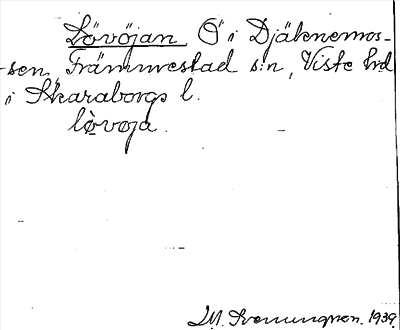 Lövöjan Ö i Djäknemos-
sen, Främmestad s:n, Viste hrd
i Skaraborgs l.
lövöja.
1939.